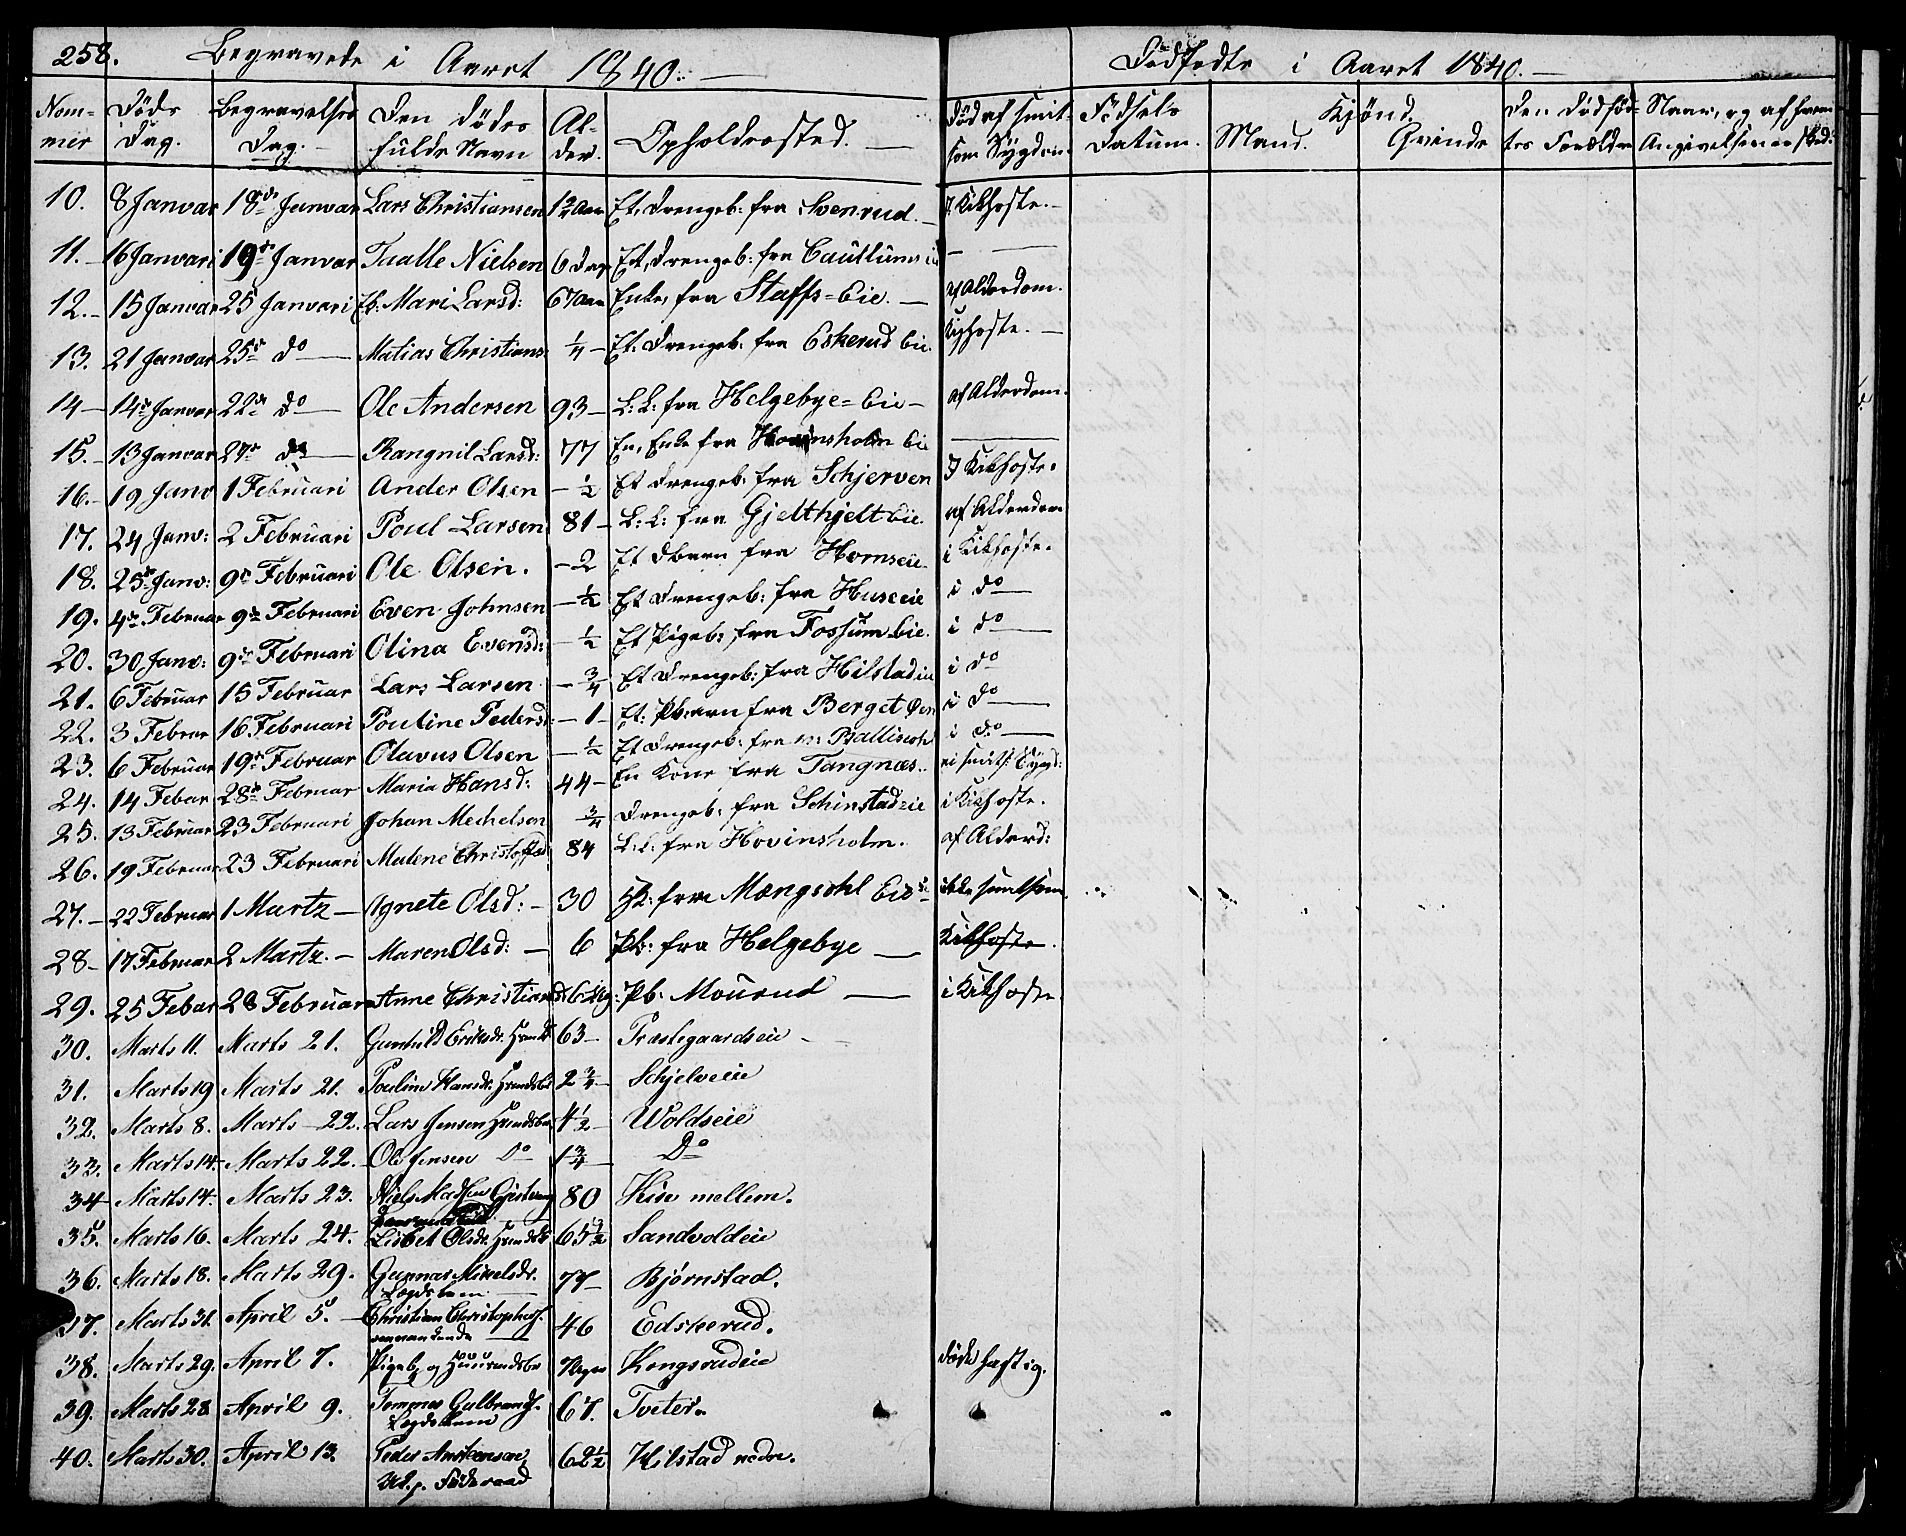 258. Begravede i Aaret 1840. Dødfødte i Aaret 1840.
Nom- Døds Begravelses Den dødes Al- Opholdssted. Død af smit- Fødsels Kjønd. Den dødfød- Naar, og af hvem
mer Dag. Dag. fulde Navn der. som Sygdom Datum. Mand. Qvinde tes Forældre Angivelsen er sked.
10. 8 Januar 18de Januar Lars Christiansen Et Drengeb: fra Svenrud. I Kikhoste.
11. 16 Januari 19de Januar Taalle Nielsen 6 Dage Et Drengeb: fra
12. 15 Januar 25 Januari Mari Larsd: 67 Aar Enke, fra Staffs-Eie. af Alderdom.
13. 21 Januar 25de do Matias Christians: ¼ Et Drengeb: fra Eskerud Eie. Kighoste.
14 14de Januar 22de do Ole Andersen 93 L: L: fra Helgebye-Eie af Alderdom.
15. 13 Januar do Rangnil Larsd: 77 En, Enke fra Hovinsholm Eie
16. 19 Janv 1 Februari Ander Olsen ½ Et Drengeb: fra Schjerven I Kikhoste.
17. 24 Janv: 2 Februari Poul Larsen 81 L: L: fra Gjelthjelt Eie. af Alderdom
18. 25de Janv: 9de Februari Ole Olsen. 2 Et Dbarn fra Hornseie i Kikhoste.
19. 4de Februar 9de Februari Even Johnsen ½ Et Drengeb: fra Huseeie i do
20. 30 Janv: 9de Februari Olina Evensd: ½ Et Pigeb: fra Fossum Eie. i do
21. 6 Februar 15 Februar Lars Larsen ¾ Et Drengeb: fra Hilstadeie i do
22. 3 Februar 16 Februari Pouline Pedersd: 1 Et: Pb:arn fra Berget i do
23. 6 Februar 19de Februar Olavus Olsen ½ Et Drengeb: fra i do
24. 14 Febuar 28de Februar Maria Hansd: 44 En Kone fra Tangnæs.
25. 13 Februar 23 Februari Johan Mechelsen ¾ Drengeb: fra Schinstadeie i Kikhoste.
26. 19 Februar 23 Februari Malene Christoffersd 84 L: L: fra Hovinsholm. af Alderd:
27. 22 Februar 1 Martz Agnete Olsd: 30 fra Mængsohl Eie ikke smitsom
28 17 Februar 2 Martz. Maren Olsd: 6 Pb: fra Helgebye Kikhoste.
29. 25 Febuar 28 Februar Anne Christiansd. 6 Pb. Mourud i Kikhoste
30. Marts 11. Marts 21. Gunhild Eriksdr. 63 Præstegaardseie
31. Marts 19 Marts 21. Pouline Hansdr. 2¾ Schjelveeie
32. Marts 8. Marts 22. Lars Jensen 4½ Woldseie
33. Marts 14. Marts 22. Ole Jensen Do 1¾ Do
34 Marts 14. Marts 23. Niels Madsen 80 Kise mellem.
35. Marts 16. Marts 24. Lisbet Olsdr. 65½ Sandvoldeie
36. Marts 18. Marts 29. Gunnar Mikelsdr. 77 Bjørnstad.
Lægdslem
37. Marts 31. April 5. Christian Christophers. 46 Edskerud.
38. Marts 29. April 7. Pigeb. og 7 Kongsrudeie døde hastig.
39. Marts 28 April 9. Tommas Gulbrands. 67. Tveter.
Lægdslem
40. Marts 30. April 13. Peder 62½ Hilstad nedre.
Føderaad